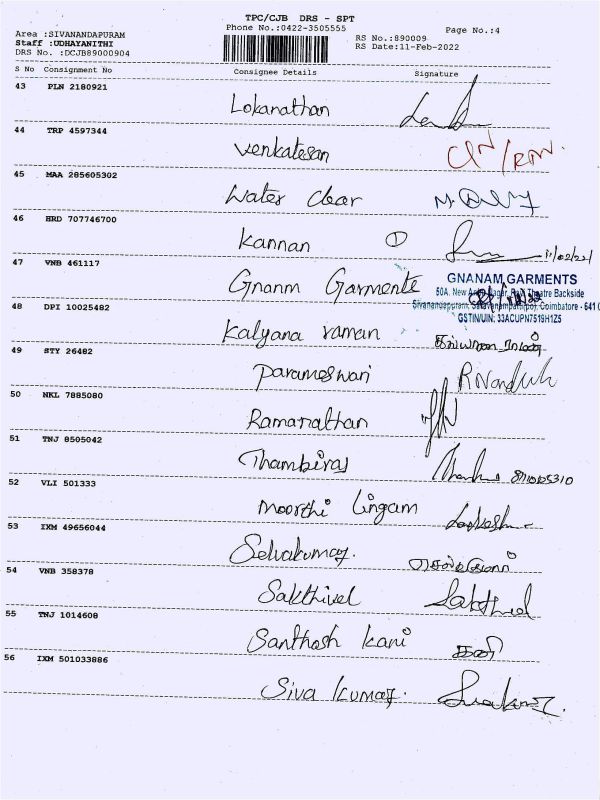 TPC/CJB DRS - SPT
Phone No.:0422-3505555
Page No.:4
Area :SIVANANDAPURAM
Staff :UDHAYANITHI
DRS No. :DCJB89000904
RS No.:890009
RS Date:11-Feb-2022
S No Consignment No Consignee Details Signature
43 PLN 2180921
Lokanathan
44 TRP 4597344
Venkatesan
45 MAA 285605302
Water Clear
46 HRD 707746700
Kannan 1 11/02/22
47 VNB 461117
Gnanm Garments
GNANAM GARMENTS
Theatre Backside
Coimbatore - 641
GSTIN/UIN: 33ACUPN7519H1Z5
48 DPI 10025482
Kalyana raman கல்யாண ராமன்
49 STY 26482
Parameswari
50 NKL 7885080
Ramanathan
51 TNJ 8505042
Thambiraj
52 VLI 501333
Moorthi Lingam
53 IXM 49656044
Selvakumar.
54 VNB 358378
Sakthivel Sakthivel
55 TNJ 1014608
Santhosh Kani கனி
56 IXM 501033886
Siva Kumar. Sivakumar.